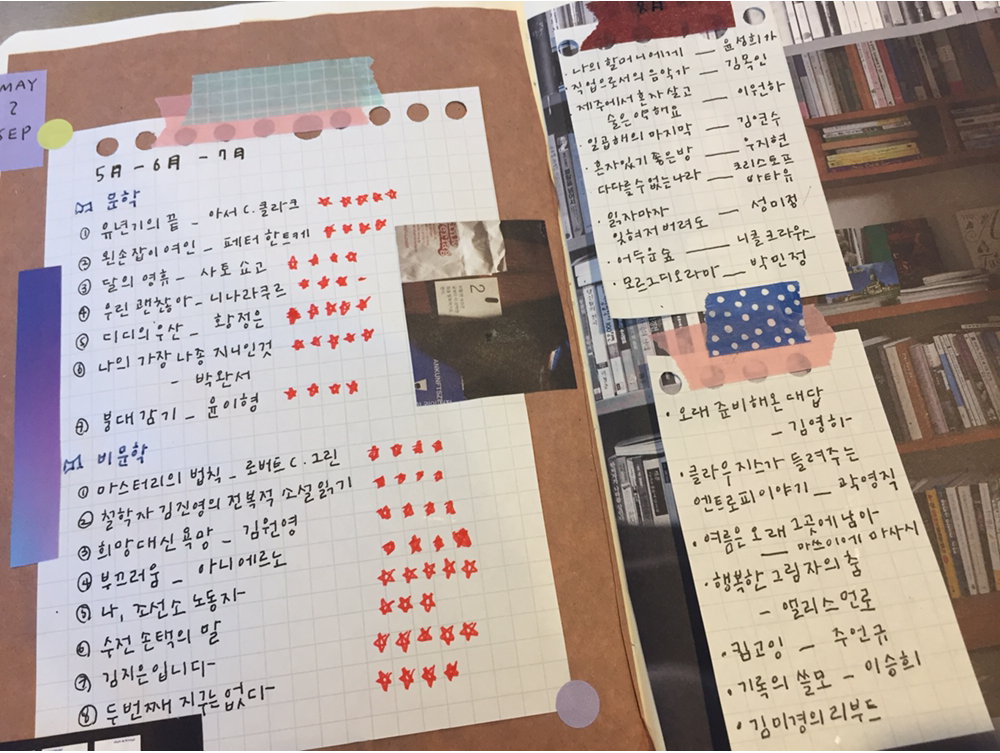 MAY
2
SEP
5月 - 6月 - 7月
문학
① 유년기의 끝 - 아서 C. 클라크 ☆☆☆☆☆
② 왼손잡이 여인 - 페터 한트케 ☆☆☆☆
③ 달의 영휴 - 사토 쇼고 ☆☆☆☆
④ 우린 괜찮아 - 니나 라쿠르
⑤ 디디의 우산 - 황정은 ☆☆☆☆☆
⑥ 나의 가장 나종 지니인 것 ☆☆☆☆☆
- 박완서
⑦ 붕대 감기 - 윤이형 ☆☆☆☆
비문학
① 마스터리의 법칙 - 로버트 C. 그린 ☆☆☆☆
② 철학자 김진영의 전복적 소설 읽기 ☆☆☆☆
③ 희망 대신 욕망 - 김원영 ☆☆☆☆
④ 부끄러움 - 아니 에르노 ☆☆☆☆
⑤ 나, 조선소 노동자 ☆☆☆☆☆
⑥ 수전 손택의 말 ☆☆☆
⑦ 김지은입니다 ☆☆☆☆☆
⑧ 두번째 지구는 없다 ☆☆☆☆
2
8月
· 나의 할머니에게 — 윤성희 가
· 직업으로서의 음악가 — 김목인
· 제주에서 혼자 살고 — 이원하
술은 약해요
· 일곱 해의 마지막 — 김연수
· 혼자 있기 좋은 방 — 우지현
· 다다를 수 없는 나라 — 크리스토프
바타유
· 읽자마자
잊혀져 버려도 — 성미정
· 어두운 숲 — 니콜 크라우스
· 모르그 디오라마 — 박민정
· 오래 준비해온 대답
- 김영하
· 클라우지우스가 들려주는
엔트로피 이야기 — 곽영직
· 여름은 오래 그곳에 남아
— 마쓰이에 마사시
· 행복한 그림자의 춤
- 앨리스 먼로
· 킵고잉 — 주언규
· 기록의 쓸모 - 이승희
· 김미경의 리부트